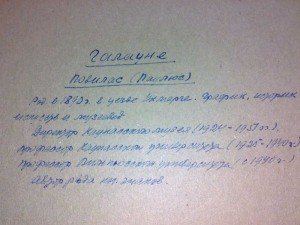 Галауне
Повилас (Паулюс)
Род. в 1890 г. в уезде Укмерге. График, историк
искусств и музеевед
Директор Каунасского музея (1924-1957 гг),
профессор Каунасского университета (1925-1940 гг.)
профессор Вильнюсского университета (с 1940 г.)
Автор ряда кн. знаков.